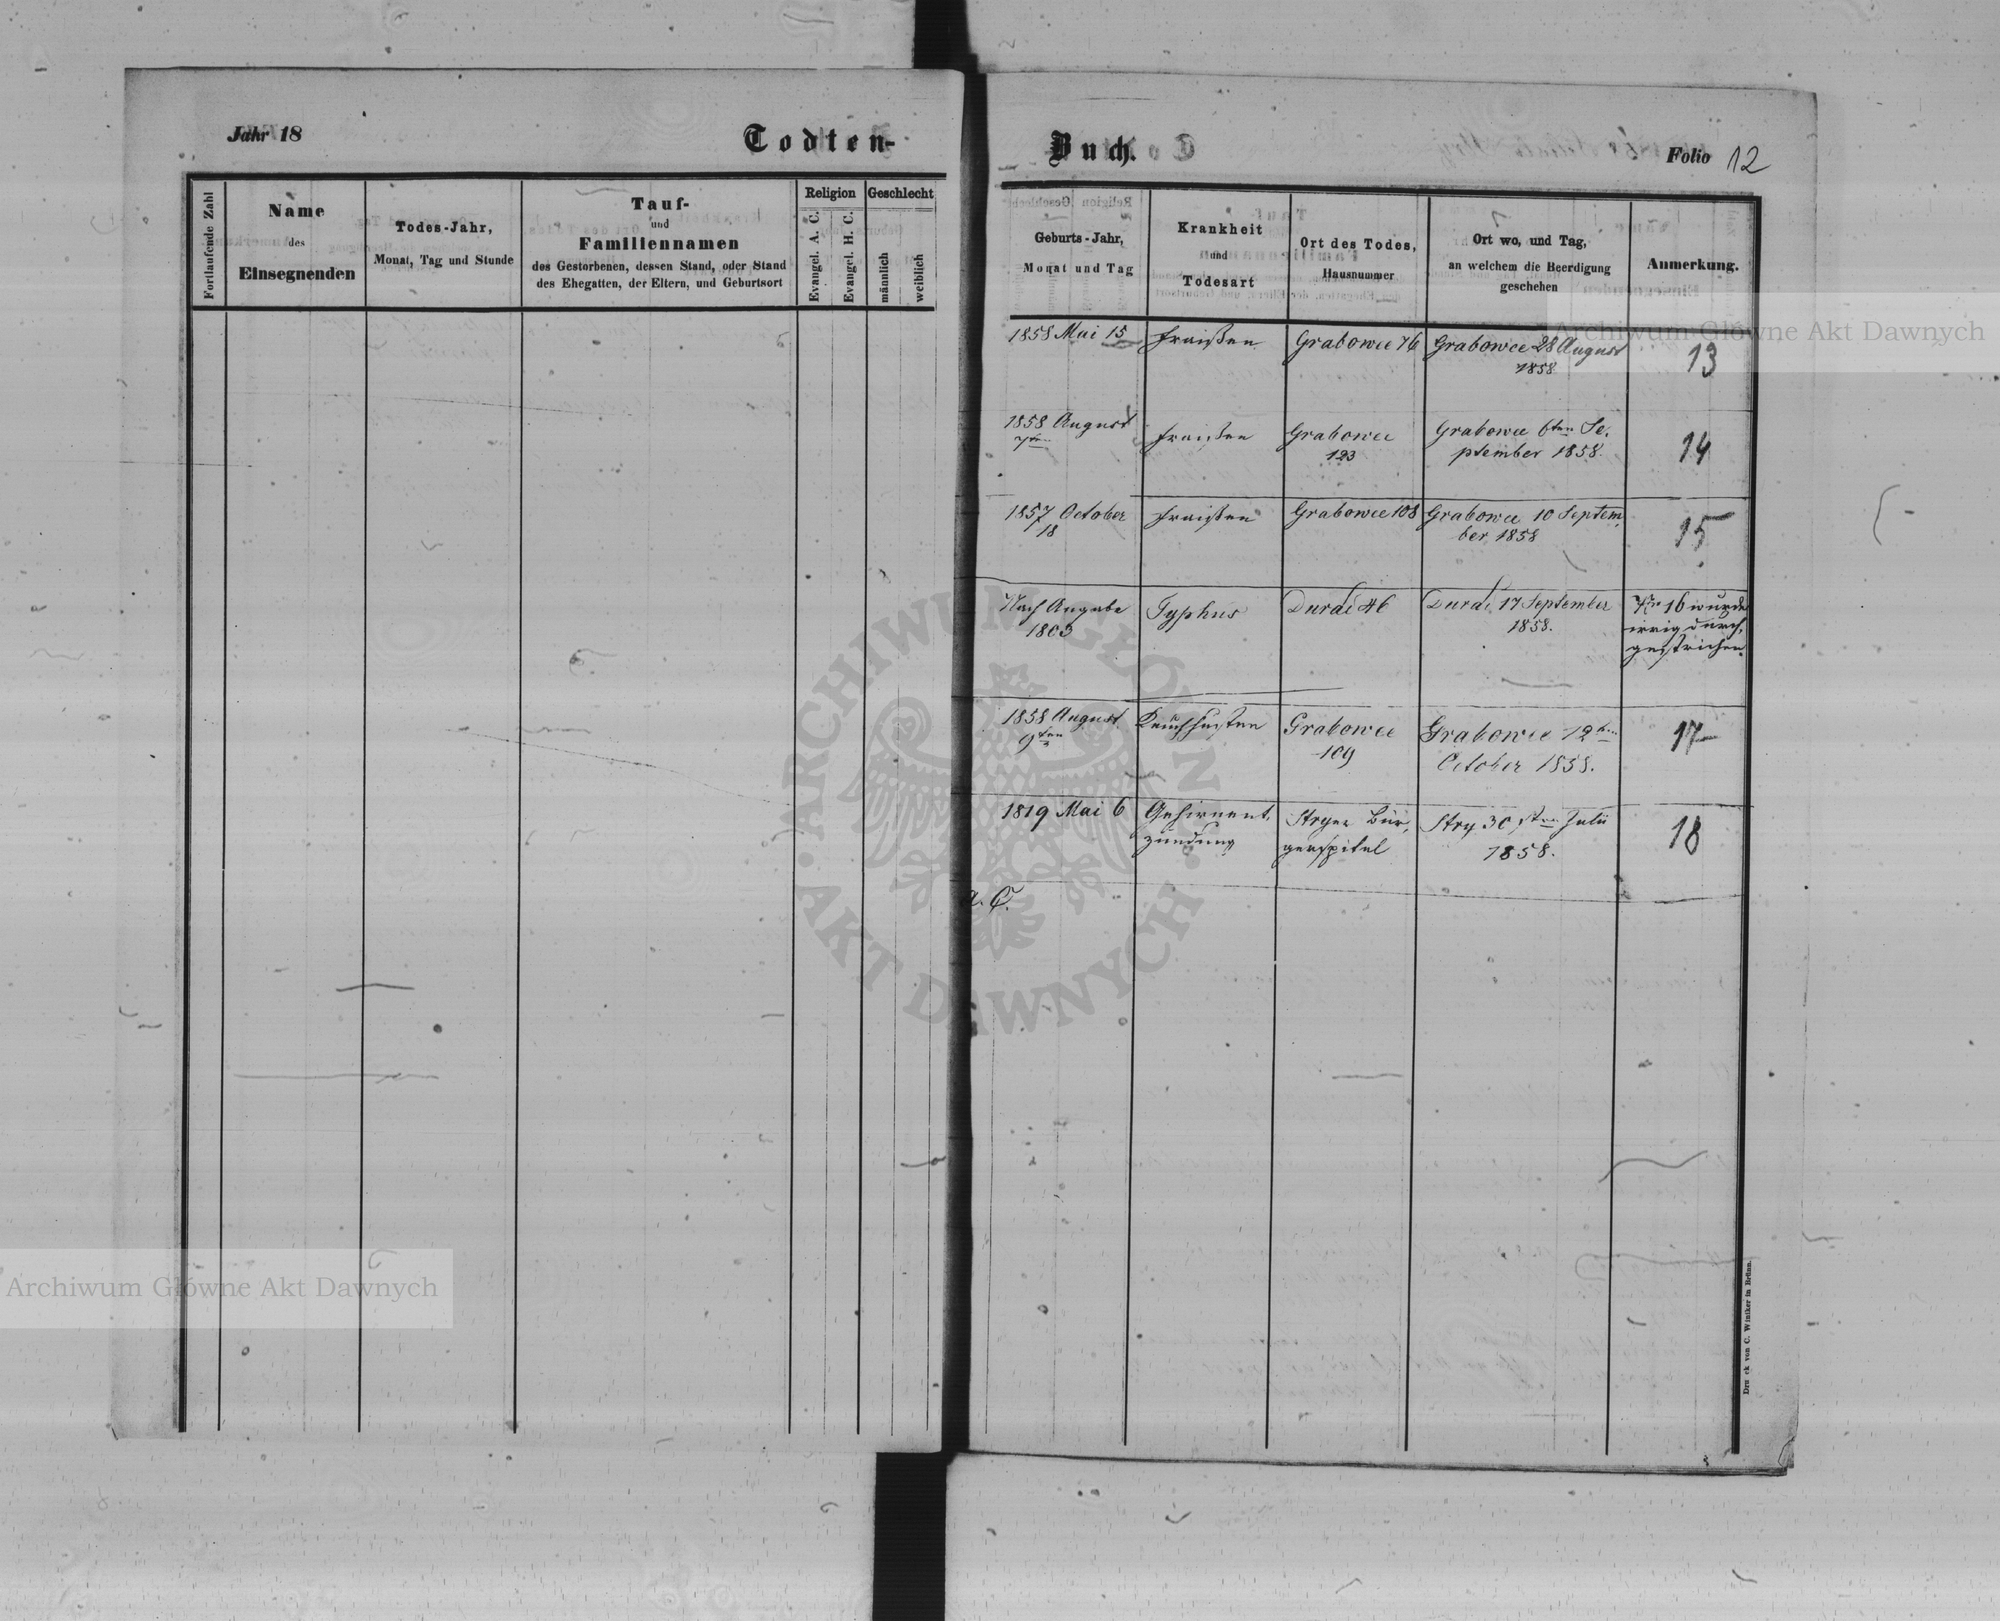 Jahr 18
Todten-
Fortlaufende Zahl
Name
des
Einsegnenden
Todes-Jahr,
Monat, Tag und Stunde
Tauf-
und
Familiennamen
des Gestorbenen, dessen Stand, oder Stand
des Ehegatten, der Eltern, und Geburtsort
Religion
Evangel. A. C.
Evangel. H. C.
Geschlecht
männlich
weiblich
Buch.
Folio 12
Geburts-Jahr,
Monat und Tag
Krankheit
und
Todesart
Ort des Todes,
Hausnummer
Ort wo, und Tag,
an welchem die Beerdigung
geschehen
Anmerkung.
1858 Mai 15
Fraißen
Grabowce 76
Grabowce 28 August
1858
13
1858 August
7ten
Fraißen
Grabowce
123
Grabowce 6ten Se-
ptember 1858.
14
1857 October
18
Fraißen
Grabowce 108
Grabowce 10 Septem-
ber 1858
15
Nach Angabe
1803
Typhus
Durdi 46
Durdi 17 September
1858.
Nro 16 wurde
irrig durch-
gestrichen.
1858 August
9ten
Keuchhusten
Grabowce
109
Grabowce 12ten
October 1858.
17
1819 Mai 6
Gehirnent-
zündung
Stryer Bür-
gerspital
Stry 30sten Julii
1858.
18
a. C.
Druck von C. Winiker in Brünn.
Archiwum Główne Akt Dawnych
Archiwum Główne Akt Dawnych
ARCHIWUM GŁÓWNE
AKT DAWNYCH